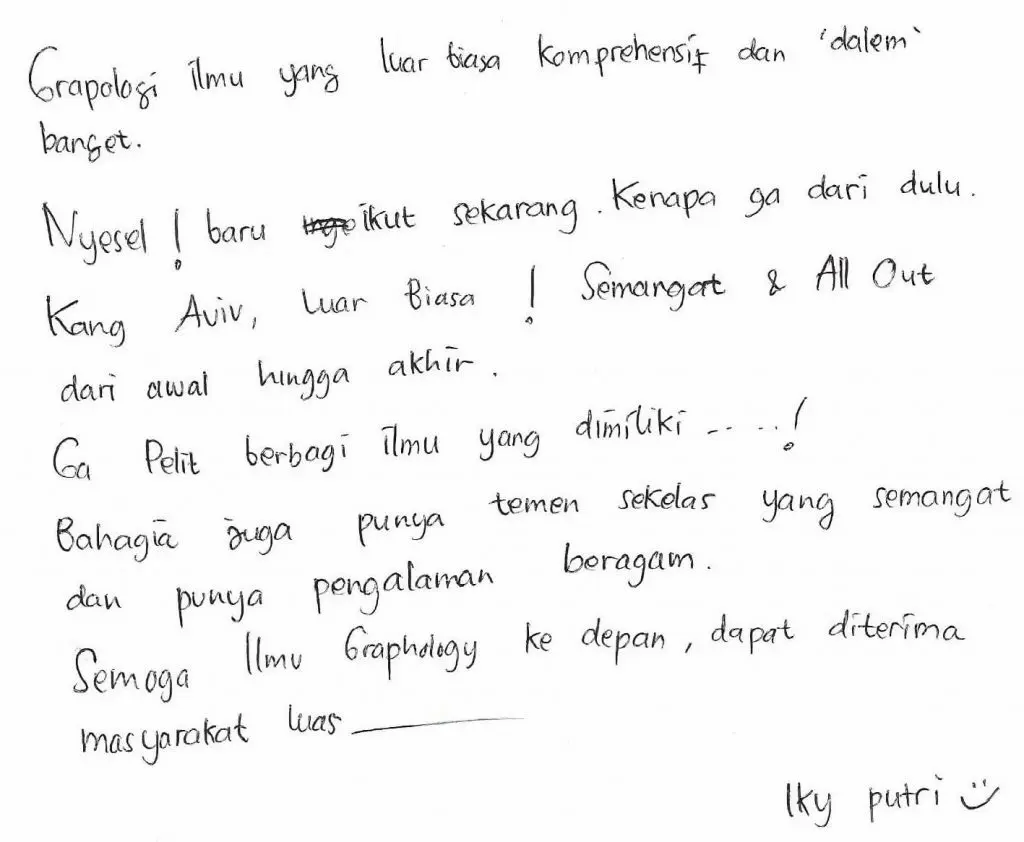 Grapologi ilmu yang luar biasa komprehensif dan 'dalem'
banget.
Nyesel! baru ikut sekarang. Kenapa ga dari dulu.
Kang Aviv, Luar Biasa! Semangat & All Out
dari awal hingga akhir.
Ga Pelit berbagi ilmu yang dimiliki .....!
Bahagia juga punya temen sekelas yang semangat
dan punya pengalaman beragam.
Semoga Ilmu Graphology ke depan, dapat diterima
masyarakat luas
Iky putri